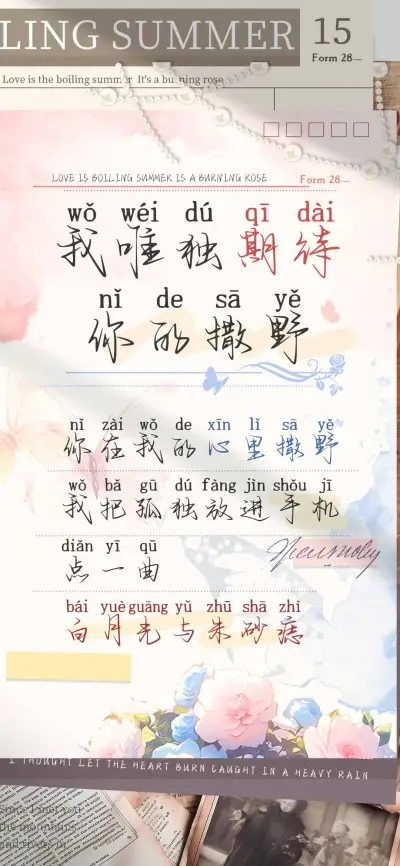 LING SUMMER
15
Form 28—
Love is the boiling summer It's a burning rose
LOVE IS BOILING SUMMER IS A BURNING ROSE
Form 28—
wǒ wéi dú qī dài
我唯独期待
nǐ de sā yě
你的撒野
nǐ zài wǒ de xīn lǐ sā yě
你在我的心里撒野
wǒ bǎ gū dú fàng jìn shǒu jī
我把孤独放进手机
diǎn yī qū
点一曲
bái yuè guāng yǔ zhū shā zhì
白月光与朱砂痣
I THOUGHT LET THE HEART BURN CAUGHT IN A HEAVY RAIN
Since I met you
the mountains
and rivers in